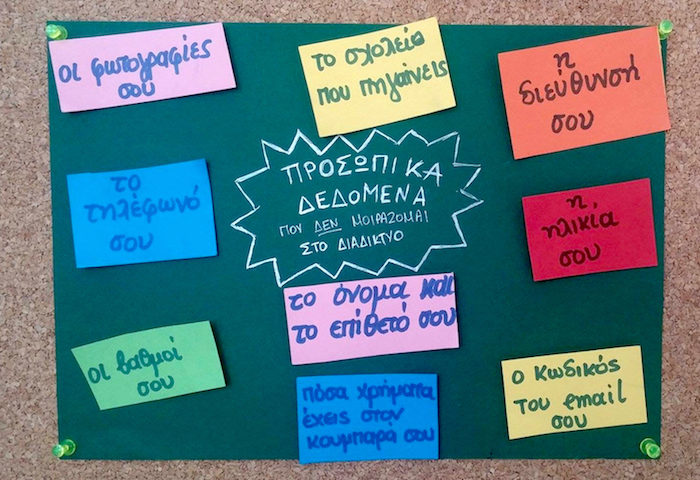 οι φωτογραφίες
σου
το σχολείο
που πηγαίνεις
η
διεύθυνσή
σου
το
τηλέφωνό
σου
ΠΡΟΣΩΠΙΚΑ
ΔΕΔΟΜΕΝΑ
ΠΟΥ ΔΕΝ ΜΟΙΡΑΖΟΜΑΙ
ΣΤΟ ΔΙΑΔΙΚΤΥΟ
η
ηλικία
σου
το όνομα και
το επίθετό σου
οι βαθμοί
σου
πόσα χρήματα
έχεις στον
κουμπαρά σου
ο κωδικός
του email
σου